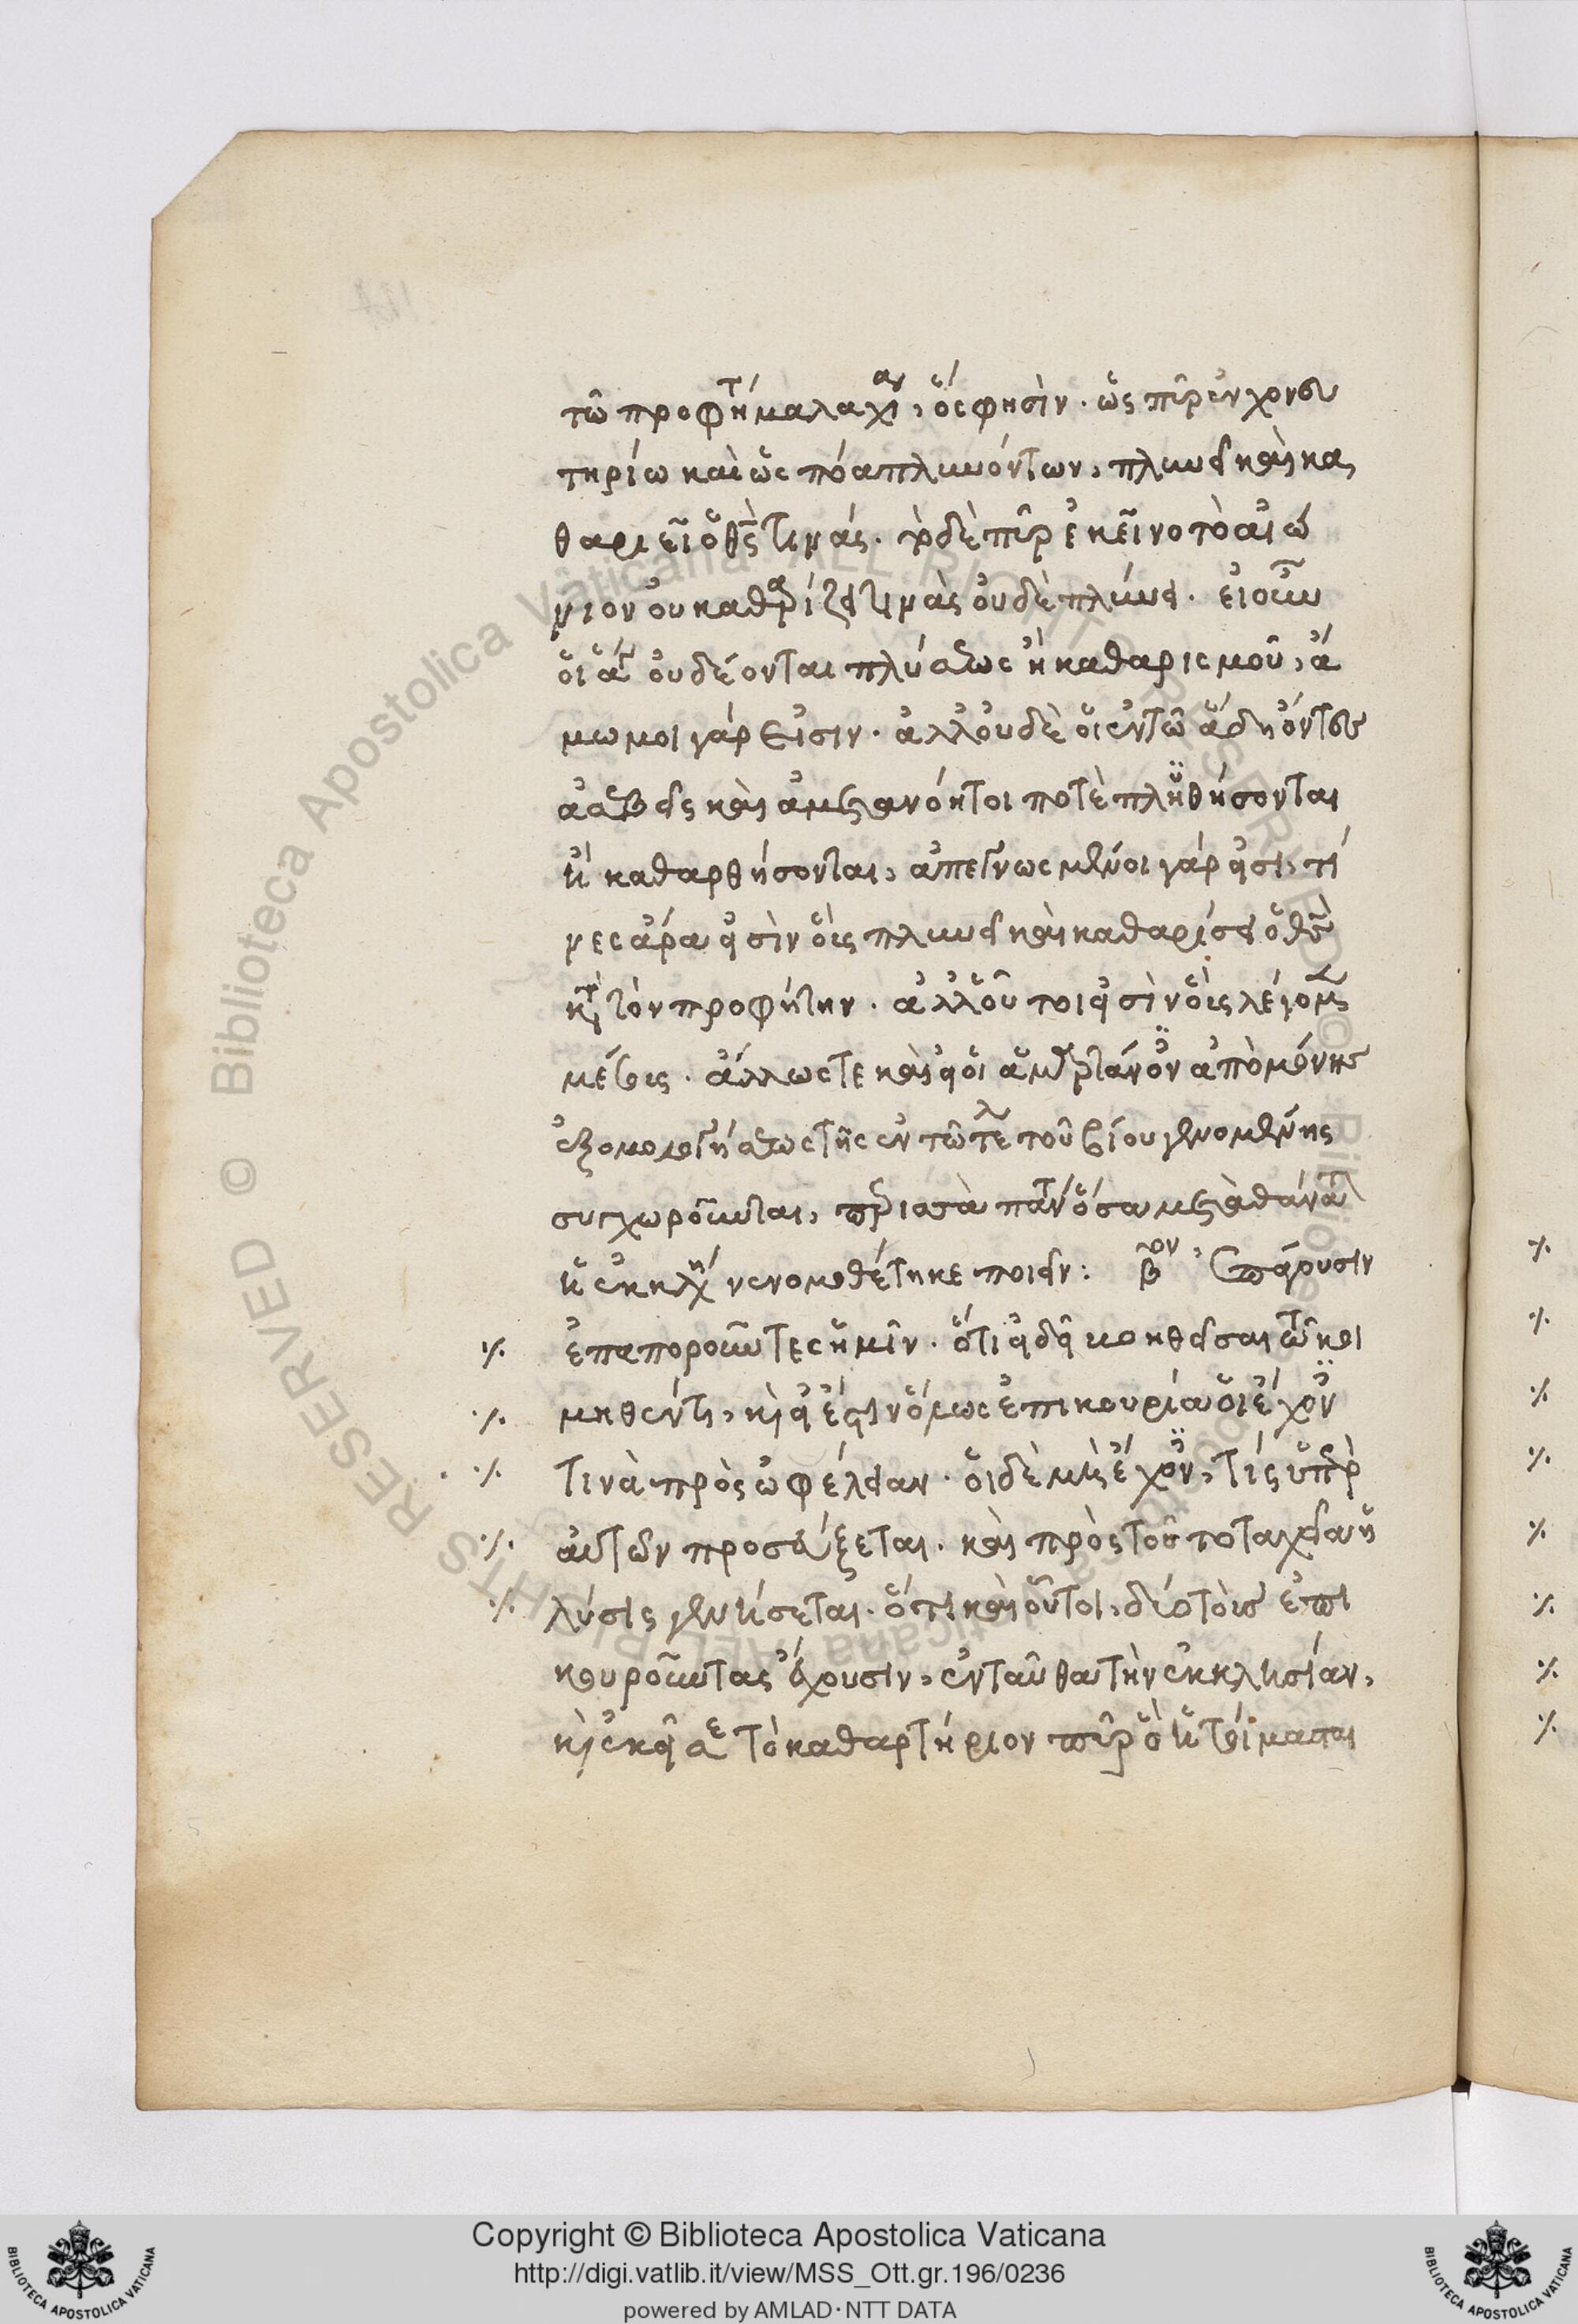 τῶ προφήτη μαλαχίαν, ὅς φησὶν. ὡς πῦρ ἐν χονευ
τηρίω καὶ ὡς πόα πλυνόντων, πλυνεῖ καὶ κα
θαριεῖ ὁ θεὸς τινάς. τὸ δὲ πῦρ ἐκεῖνο τὸ αἰώ
νιον οὐ καθαρίζει τινὰς οὐδὲ πλύνει. εἰ οὖν
οἱ ἅγιοι οὐ δέονται πλύσεως ἢ καθαρισμοῦ, ἄ
μωμοι γάρ εἰσιν. ἀλλ' οὐδὲ οἱ ἐν τῶ ἅδη ὄντες
ἀσεβεῖς καὶ ἀμετανόητοι ποτὲ πλυθήσονται
ἢ καθαρθήσονται, ἀπεγνωσμένοι γάρ εἰσι, τί
νες ἄρα εἰσὶν οἷς πλυνεῖ καὶ καθαρίσει ὁ θεὸς
κατὰ τὸν προφήτην. ἀλλ' οὗτοι εἰσὶν οἷς λέγομεν
μέσοις. ἄλλως τε καὶ εἰ οἱ ἁμαρτάνοντες ἀπὸ μόνης
ἐξομολογήσεως τῆς ἐν τῶ τέλει τοῦ βίου γενομένης
συγχωροῦνται, περισσὰ πάντα ὅσα μετὰ θάνατον
ἡ ἐκκλησία νενομοθέτηκε ποιεῖν: βον Ἐπάγουσιν
ἐπαποροῦντες ἡμῖν. ὅτι εἰ δεῖ βοηθεῖσαι τῶ κοι
μηθέντι, καὶ εἰ ἔστιν ὅλως ἐπικουρία οἱ ἔχοντες
τινὰ πρὸς ὠφέλειαν. οἱ δὲ μὴ ἔχοντες, τίς ὑπὲρ
αὐτῶν προσεύξεται. καὶ πρὸς τοῦτο ταχεῖα ἡ
λύσις γενήσεται. ὅτι καὶ οὗτοι, δύο τοὺς ἐπι
κουροῦντας ἔχουσιν, ἐνταῦθα τὴν ἐκκλησίαν,
καὶ ἐκεῖσε τὸ καθαρτήριον πῦρ
Copyright © Biblioteca Apostolica Vaticana
http://digi.vatlib.it/view/MSS_Ott.gr.196/0236
powered by AMLAD·NTT DATA